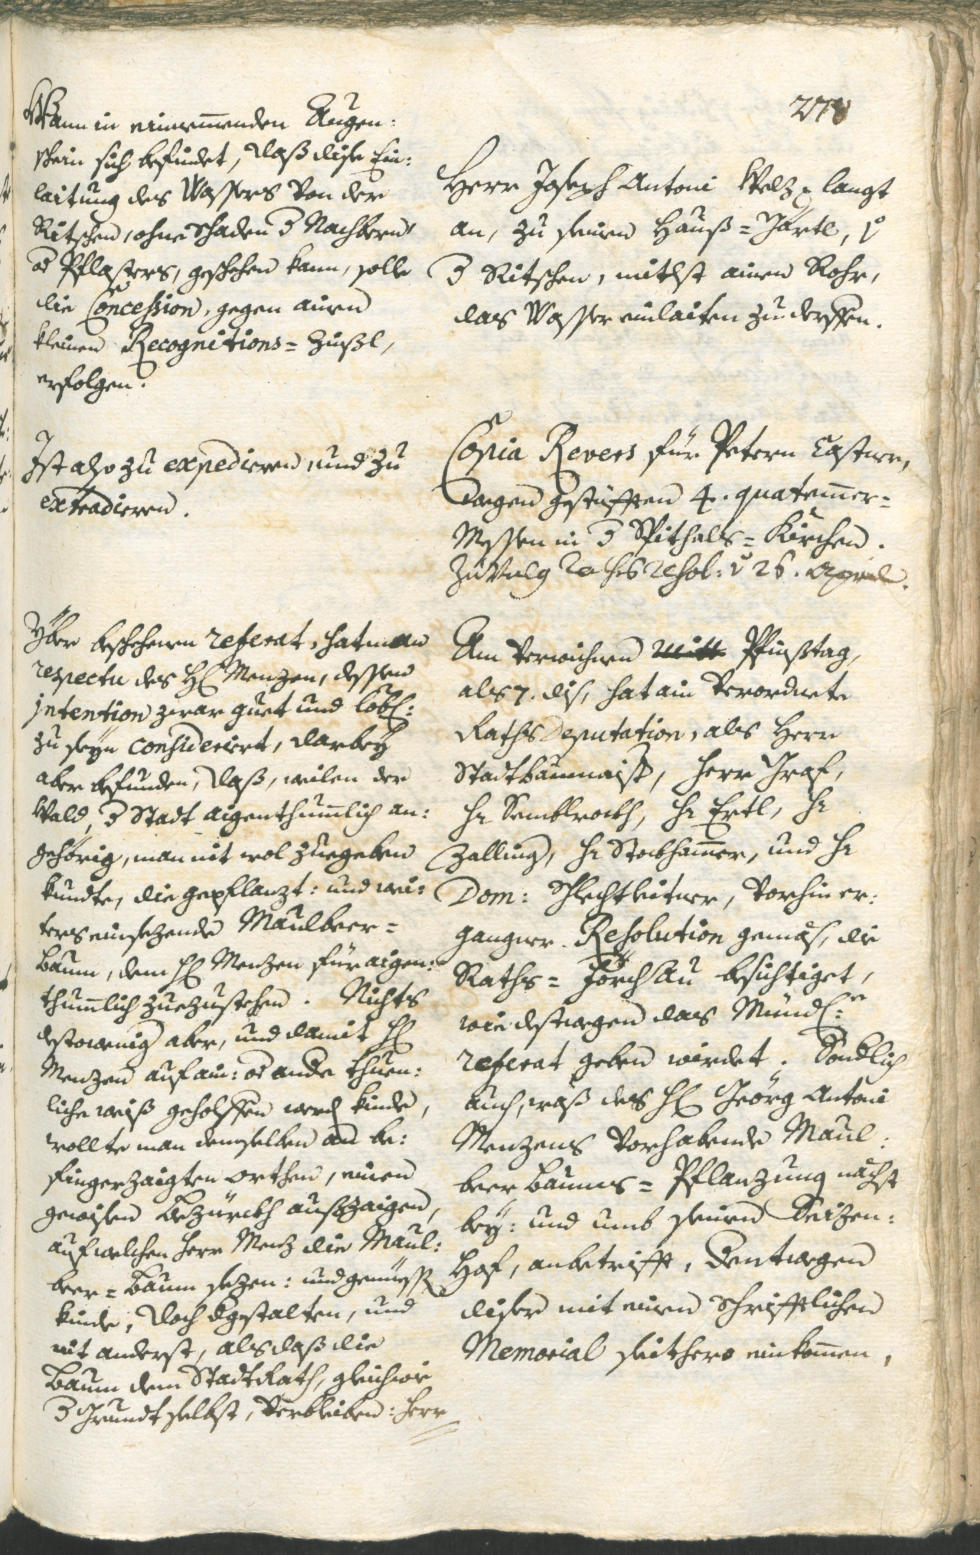 278
Wann in einnemmenden Augen:
schein sich befindet, daß dise Ein:
laitung des Wassers von der
Ritschen, ohne schaden d Nachbern
od Pflasters, geschehen kann, solle
die Concession, gegen ainen
kleinen Recognitions= Zinßl,
erfolgen.
Herr Joseph Antoni Welz langt
an, zu seinen Hauß=Gärtl, v
d Ritschen, mitlst ainen Rohr,
das Wasser einlaiten zu derffen.
Ist also zu expedieren, und zu
extradieren.
Copia Revers für Petern Castner,
wegen gestüfften 4. quatemmer=
Messen in d Spithals=Kirchen.
Zuvolg Raths resol: v 26. April.
Yber beschehenen referat, hat man
respectu des H: Menzen, dessen
intention zwar guet und löbl:
zu seyn consideriert, darbey
aber befunden, daß, weilen der
Wald, d Stadt aigenthumblich an:
gehörig, man nit wol zuegeben
kundte, die gepflanzt: und wei:
ters einsezende Maulbeer=
Baum, dem H: Menzen für aigen:
thumblich zuezustehen. Nichts
destowenig aber, und damit H:
Menzen auf ain: od ande thuen:
liche weiß geholffen werd kinde,
wollte man demselben an be:
fingerzaigten orthen, einen
gewisen Bezürckh außzaigen,
auf welchen Herr Menz die Maul:
beer=Baum sezen: und geniessen
kinde, doch dgestalten, und
nit anderst, als daß die
Baum dem Stadt Rath, gleichwie
d Grundt selbst, verbleiben: Herr
Am verwichnen Pfinßtag,
als 7. dis, hat ain verordnete
Raths Deputation, als Herr
Stadtbaumaist, Herr Graf,
Hr Semblrockh, Hr Ertl, Hr
Zalling, Hr Stockhamer, und Hr
Dom: Schlechtleitner, vorhin er:
gangner Resolution gemäß, die
Raths= besichtiget,
wie destwegen das Mündl:
referat geben wirdet. Sondlich
auch, waß des H: Geörg Antoni
Menzens vorhabende Maul:
beer Baums=Pflanzung nächst
bey: und umb seinen
Hof, anbetrifft, dentwegen
diser mit einen schrifftlichen
Memorial seithero einkomen,